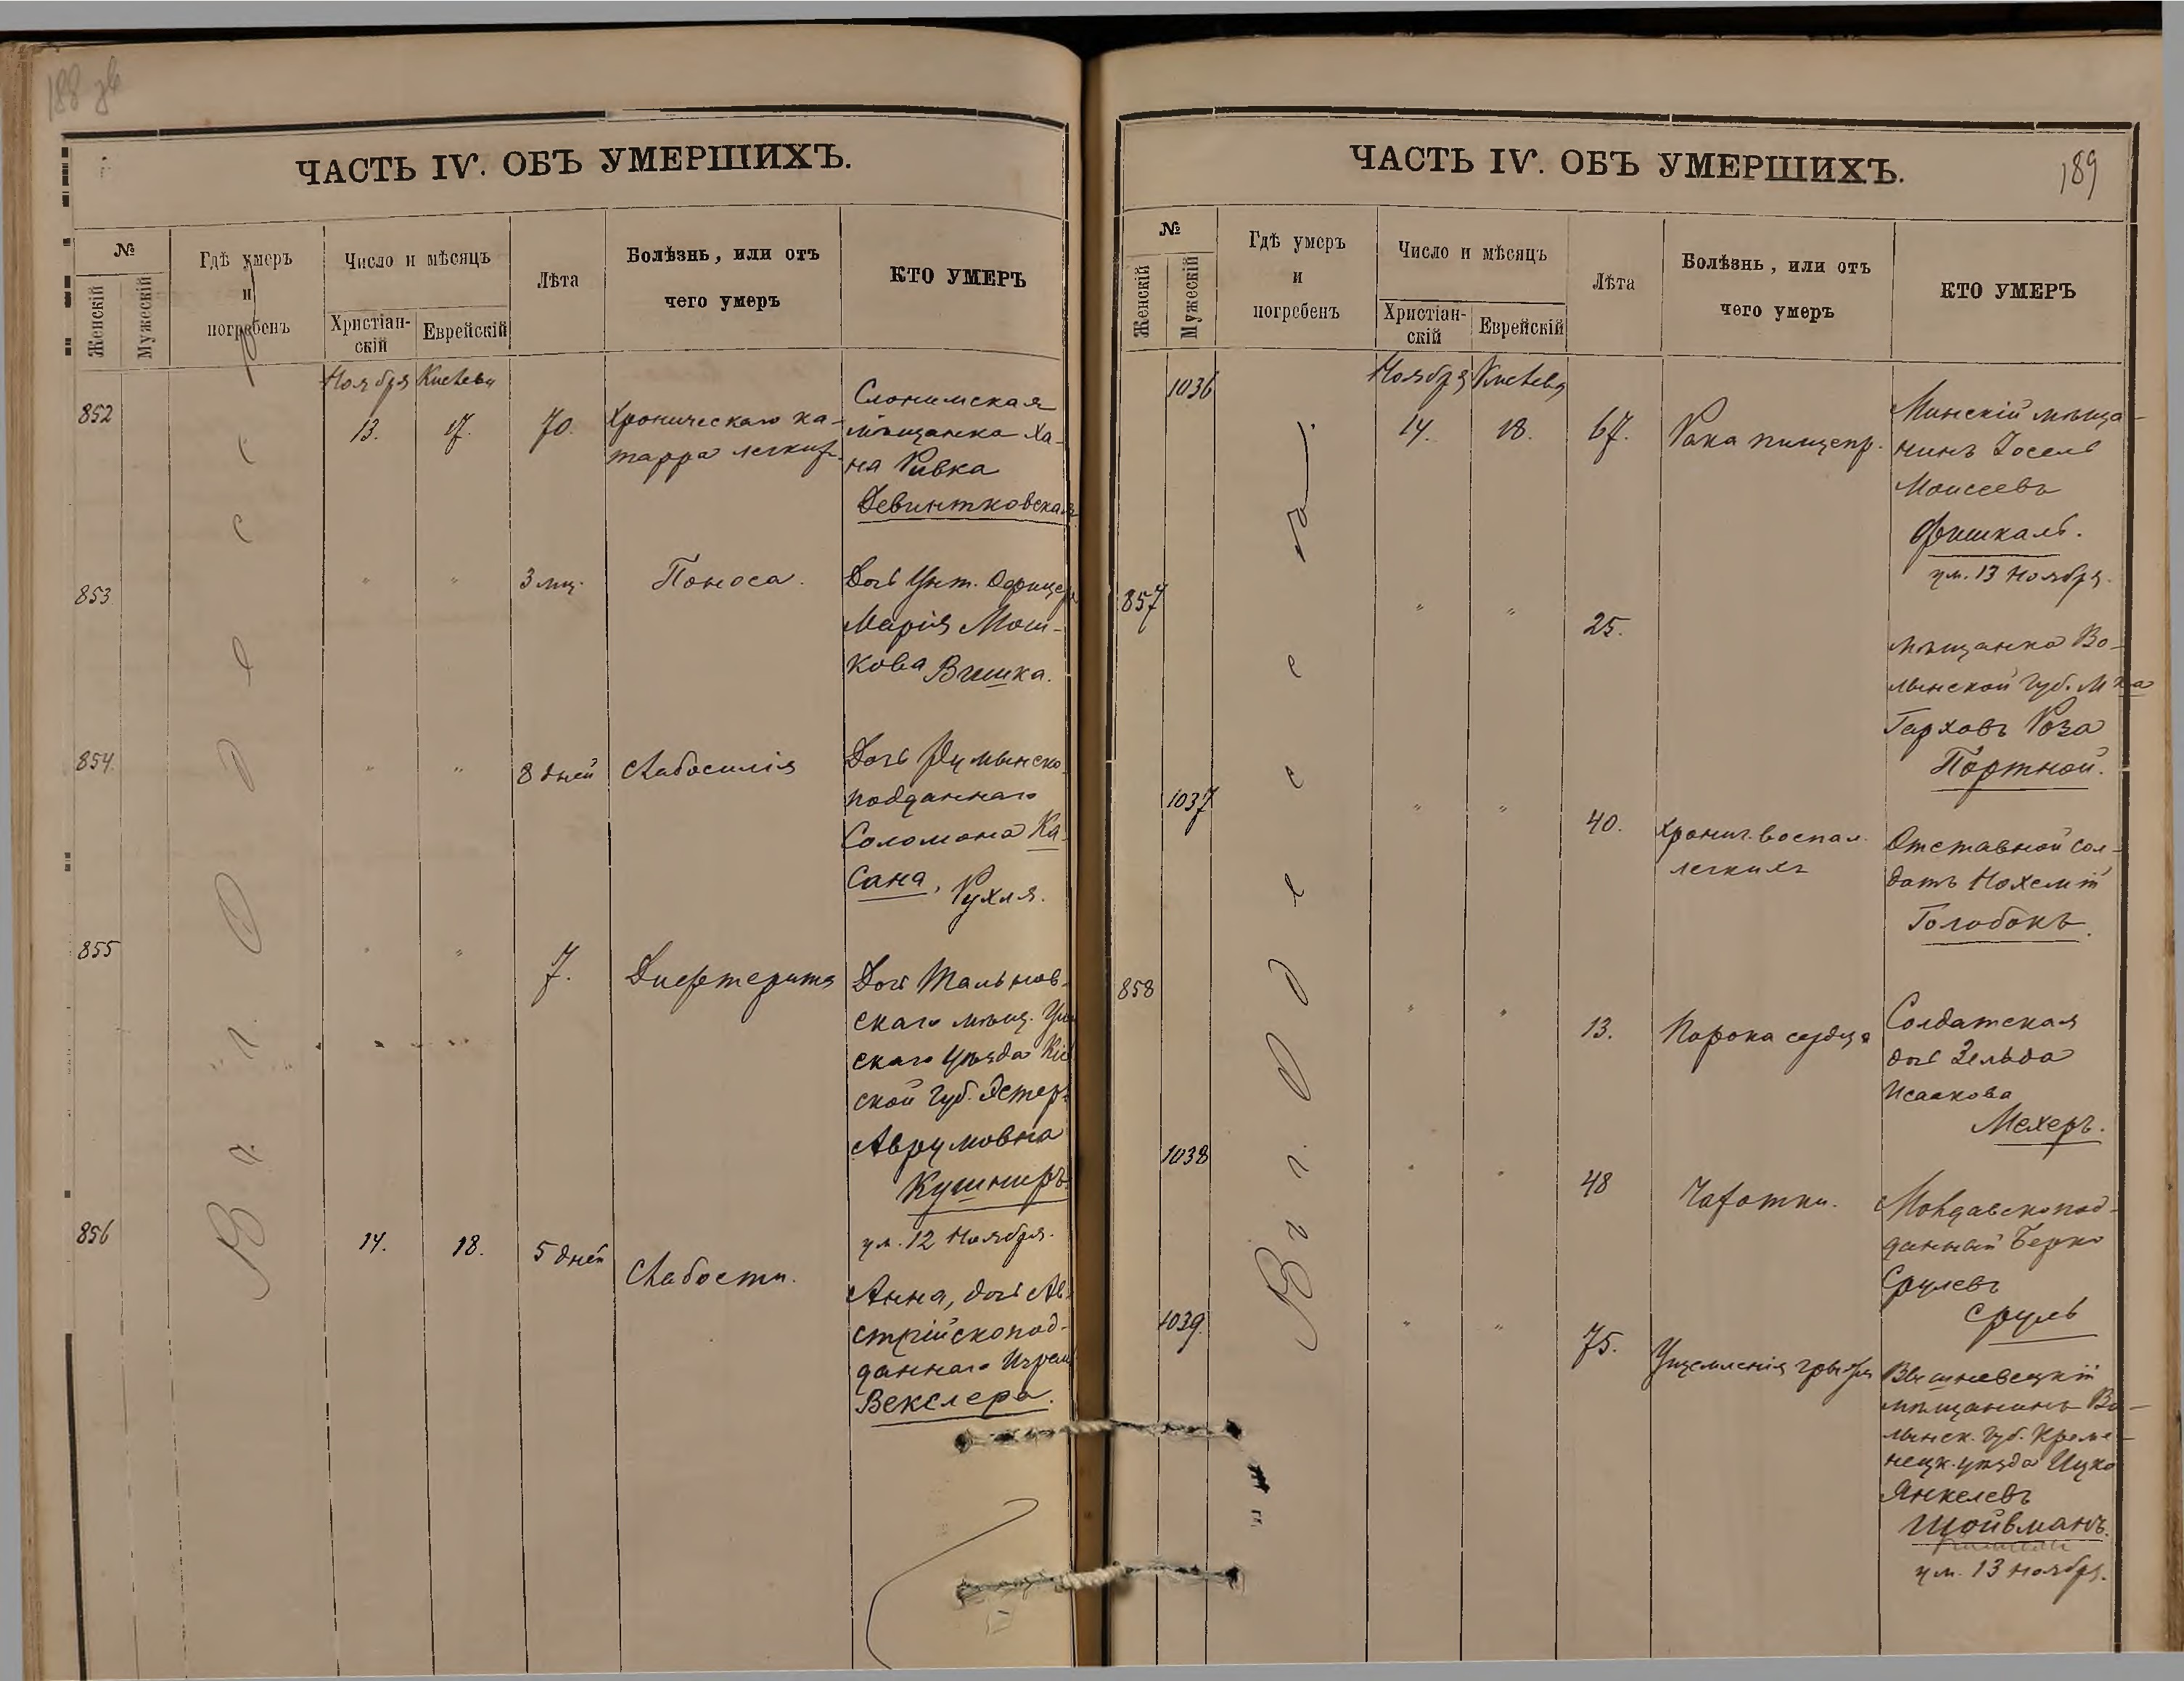 188 об
ЧАСТЬ IV. ОБЪ УМЕРШИХЪ.
№
Женскій
Мужескій
Гдѣ умеръ
и
погребенъ
Число и мѣсяцъ
Христіан-
скій
Еврейскій
Лѣта
Болѣзнь, или отъ
чего умеръ
КТО УМЕРЪ
Ноября Кислевъ
852
13.
17.
70.
Хроническаго ка-
тарра легкихъ
Слонимская
мѣщанка Ха-
на Ривка
Левинтковская
853
"
"
3 мц.
Поноса.
Дочь Унт. Офицера
Марія Мош-
кова Вишка.
854
"
"
8 дней
Слабосилія
Дочь Румынско-
подданнаго
Соломона Ка-
сана, Рухля.
855
"
"
7.
Дифтерита
Дочь Тальнов-
скаго мѣщ.
скаго уѣзда Кіев
ской Губ. Эстеръ
Аврумовна
Кушниръ
ум. 12 Ноября.
856
14.
18.
5 дней
Слабости.
Анна, дочь Ав-
стрійскопод-
даннаго
Векслера.
ЧАСТЬ IV. ОБЪ УМЕРШИХЪ.
189
№
Женскій
Мужескій
Гдѣ умеръ
и
погребенъ
Число и мѣсяцъ
Христіан-
скій
Еврейскій
Лѣта
Болѣзнь, или отъ
чего умеръ
КТО УМЕРЪ
Ноября Кислевъ
1036
14.
18.
67.
Рака пищепр.
Минскій мѣща-
нинъ Іосель
Моисеевъ
Фишкаль.
ум. 13 Ноября.
857
"
"
25.
мѣщанка Во-
лынской Губ. М-ка
Горховъ Роза
Портной.
1037
"
"
40.
Хронич. воспал.
легкихъ
Отставной сол-
датъ Нохем
Голобокъ.
858
"
"
13.
Порока сердца
Солдатская
дочь Зельда
Исаакова
Мехеръ.
1038
"
"
48
Чахотки.
Молдавскопод-
данный Берко
Срулевъ
Сруль
1039.
"
"
75.
Ущемленія грыжи
Вышневецкій
мѣщанинъ Во-
лынск. Губ. Креме-
нецк. уѣзда Ицко
Янкелевъ
Шойвманъ.
ум. 13 Ноября.